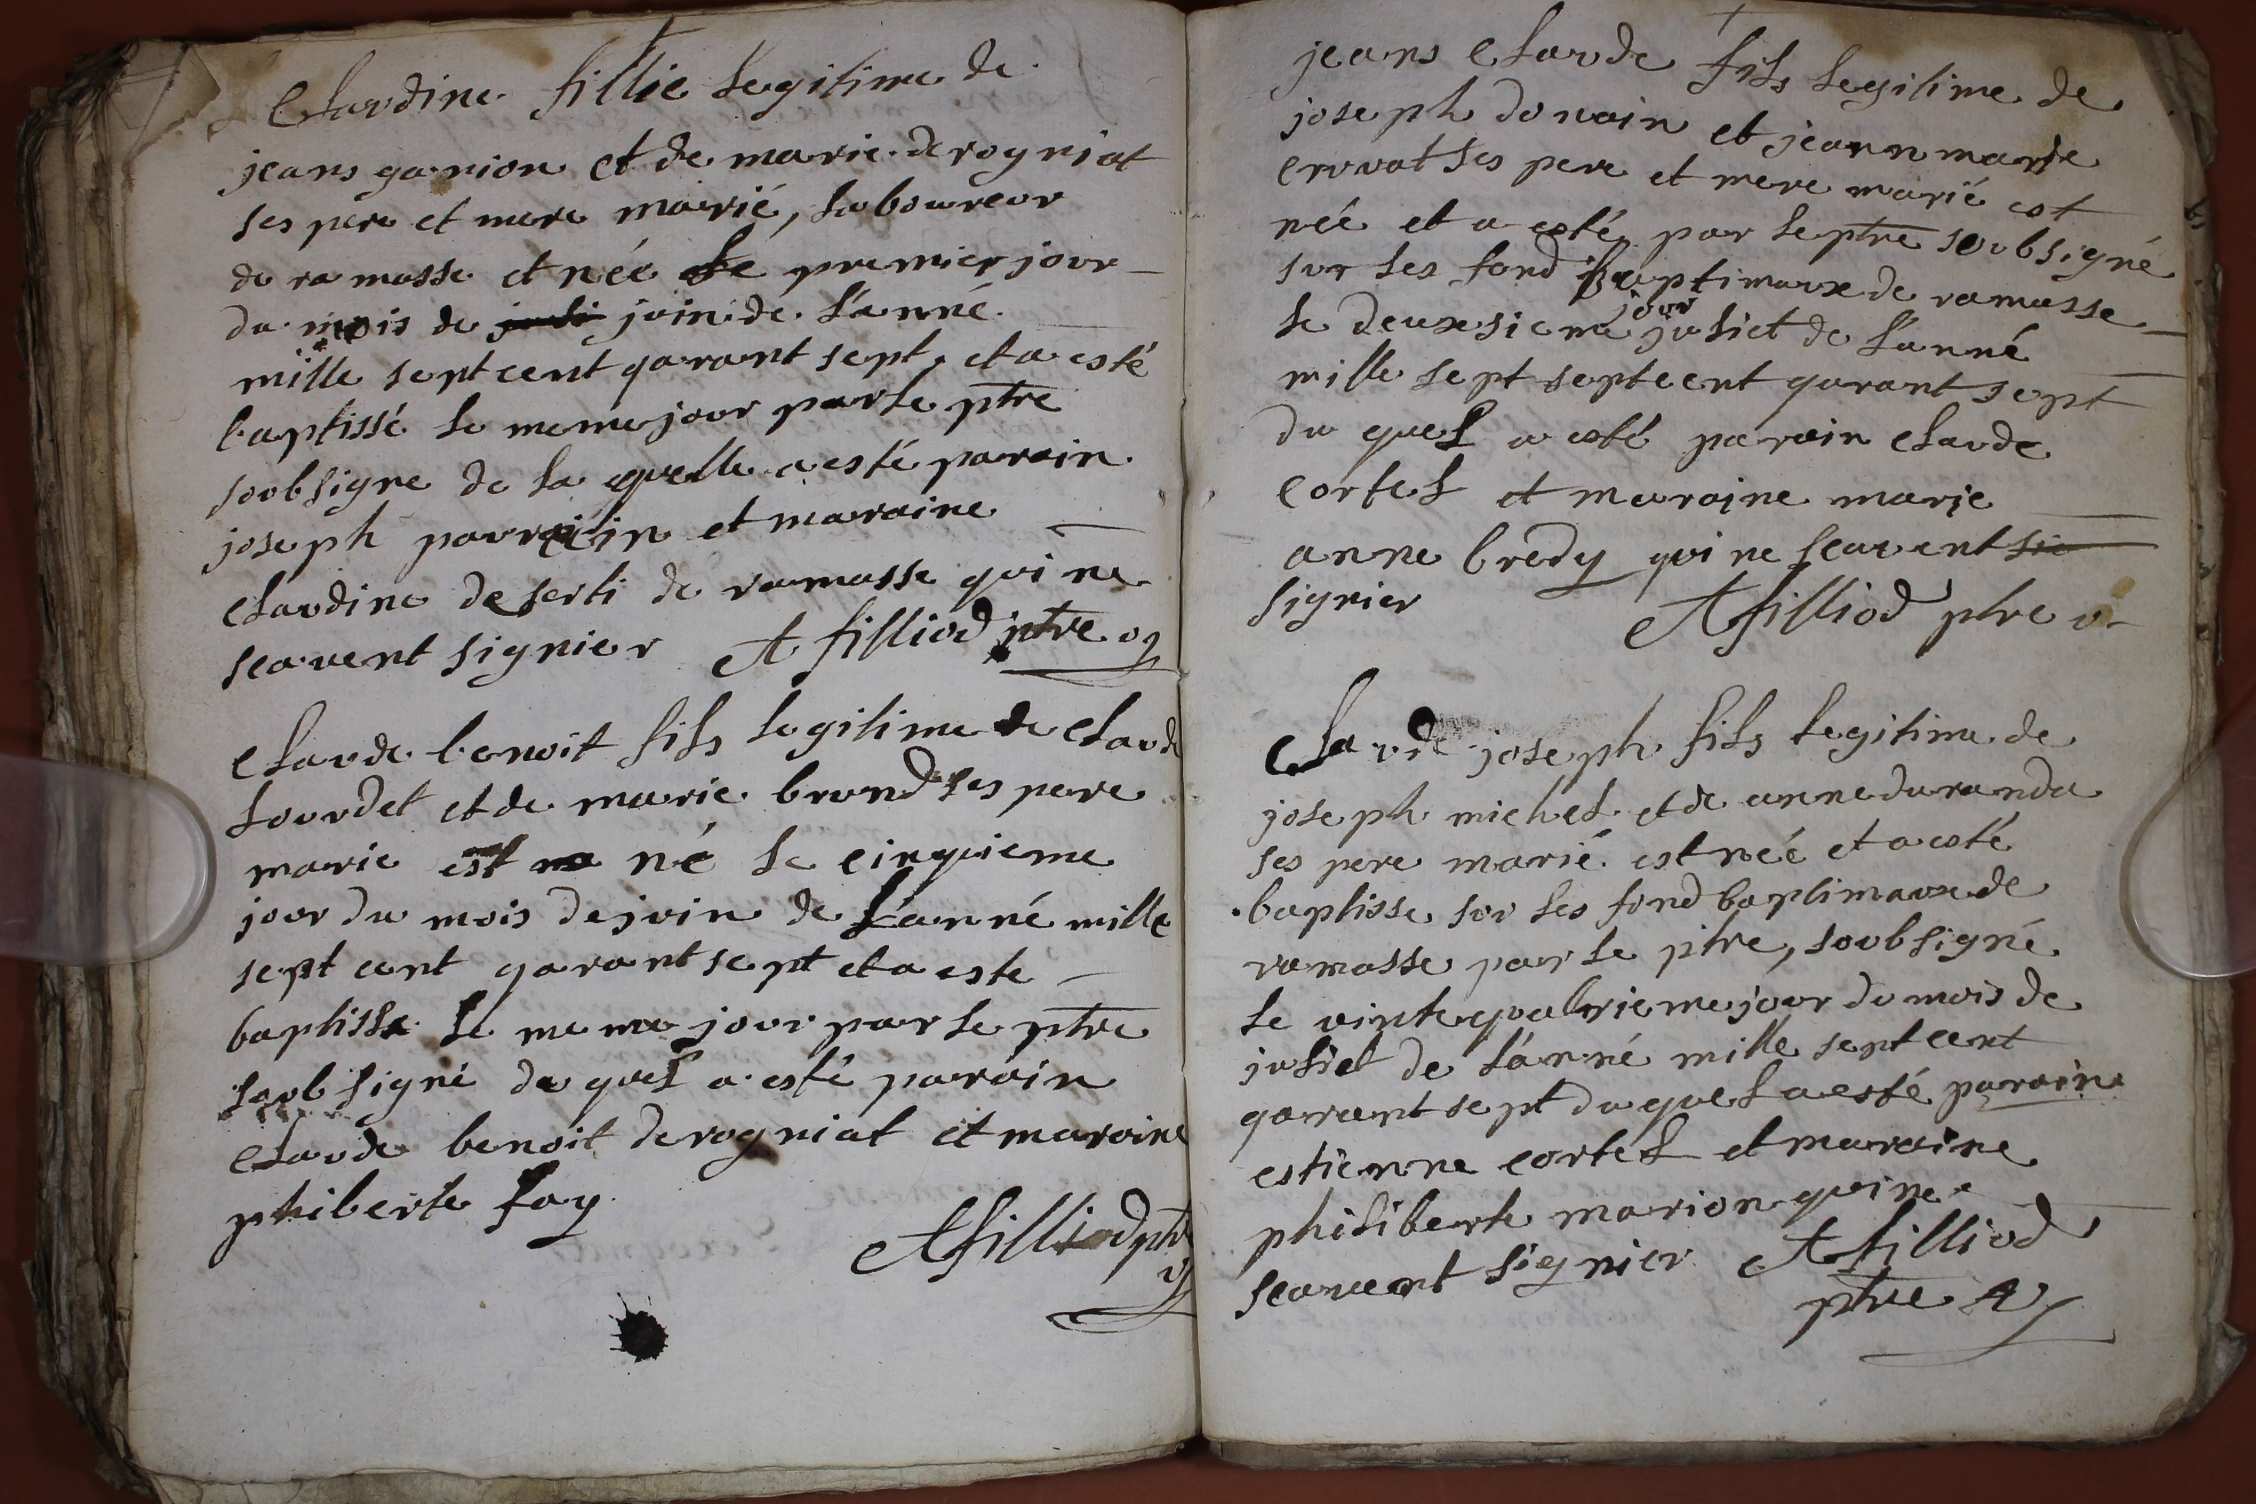 Claudine fillie legitime de
jeans garion et de marie derogniat
ses pere et mere marié, laboureur
de ramasse et née le premier jour
du mois de juli juin de l'anné
mille sept cent qarant sept, et a esté
baptissé le meme jour par le ptre
soubsigne de la quelle a esté parain
joseph et maraine
claudine deserti de ramasse qui ne
scavent signier A filliod ptre
claude benoit fils legitime de claude
lourdet et de marie brund ses pere
marie est né le cinqieme
jour du mois de juin de l'anné mille
sept cent qarant sept et a este
baptisse le meme jour par le ptre
soubsigné du quel a esté parain
claude benoit derogniat et maraine
phiberte fay
A filliod ptre
jeans claude fils legitime de
joseph donain et jeann marie
ervvat ses pere et mere marié est
née et a esté par le ptre soubsigné
sur les fond baptimaux de ramasse
le deuxsieme jour juliet de l'anné
mille sept septcent qarant sept
du quel a esté parain claude
cortel et maraine marie
anne bredy qui ne scavent sie
signier A filliod ptre
claude joseph fils legitime de
joseph michel et de anne duranda
ses pere marié est née et a esté
baptisse sur les fond baptimaux de
ramasse par le ptre, soubsigné
le vintequatrieme jour du mois de
juliet de l'anné mille sept cent
qarant sept du quel a esté parain
estienne cortel et maraine
philiberte marion qui ne
scavent signier A filliod
ptre